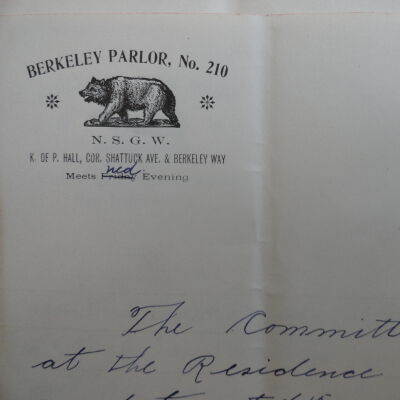 BERKELEY PARLOR, No. 210
N. S. G. W.
K. OF P. HALL, COR. SHATTUCK AVE. & BERKELEY WAY
Wed.
Meets Friday Evening
The Committ
at the Residence